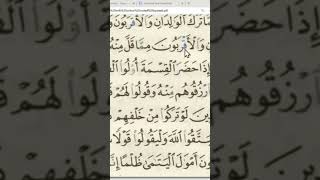 مَّا تَرَكَ ٱلْوَٰلِدَانِ وَٱلْأَقْرَبُونَ
نِ وَٱلْأَقْرَبُونَ مِمَّا قَلَّ مِنْهُ
إِذَا حَضَرَ ٱلْقِسْمَةَ أُو۟لُوا۟
ٱرْزُقُوهُم مِّنْهُ وَقُولُوا۟ لَهُمْ
ذِينَ لَوْ تَرَكُوا۟ مِنْ خَلْفِهِمْ
يَتَّقُوا۟ ٱللَّهَ وَلْيَقُولُوا۟ قَوْلًا
ونَ أَمْوَٰلَ ٱلْيَتَٰمَىٰ ظُلْمًا إِنَّ